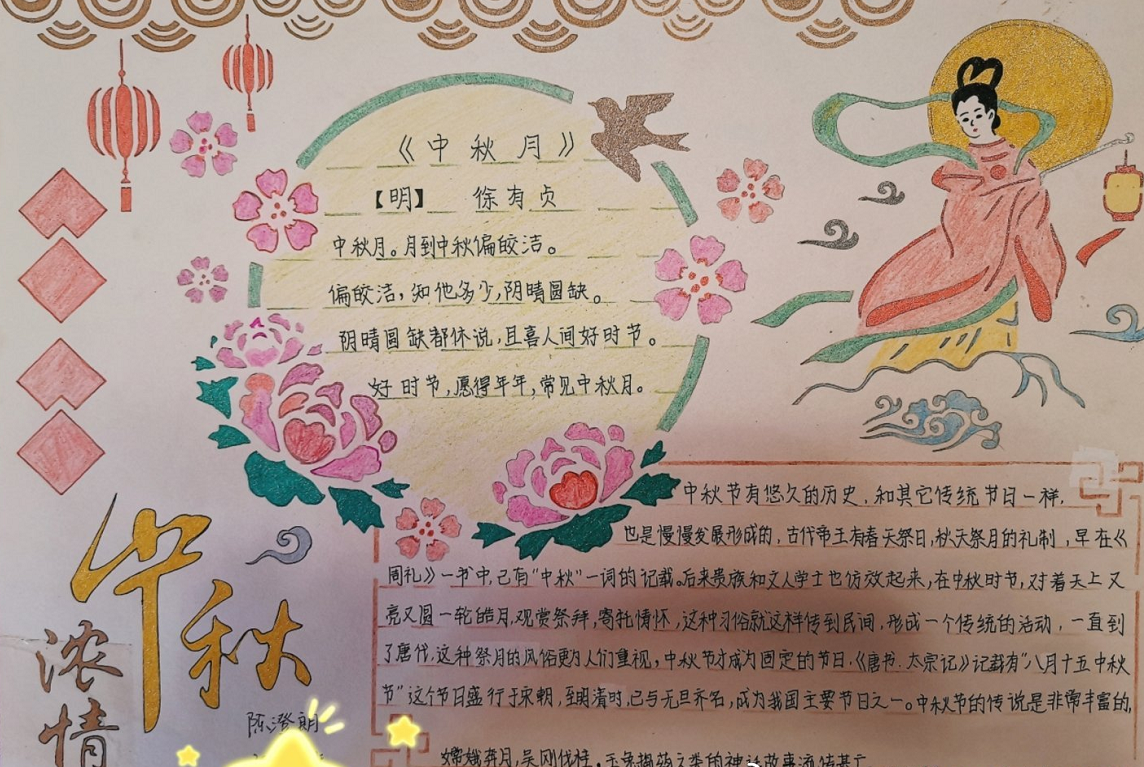 《中秋月》
【明】 徐有贞
中秋月。月到中秋偏皎洁。
偏皎洁，知他多少，阴晴圆缺。
阴晴圆缺都休说，且喜人间好时节。
好时节，愿得年年，常见中秋月。
中秋节有悠久的历史，和其它传统节日一样，
也是慢慢发展形成的，古代帝王有春天祭日，秋天祭月的礼制，早在《
周礼》一书中，已有“中秋”一词的记载。后来贵族和文人学士也仿效起来，在中秋时节，对着天上又
亮又圆一轮皓月，观赏祭拜，寄托情怀，这种习俗就这样传到民间，形成一个传统的活动，一直到
了唐代，这种祭月的风俗更为人们重视，中秋节才成为固定的节日，《唐书·太宗记》记载有“八月十五中秋
节”这个节日盛行于宋朝，至明清时，已与元旦齐名，成为我国主要节日之一。中秋节的传说是非常丰富的，
嫦娥奔月，吴刚伐桂，玉兔捣药之类的神话故事流传甚广
中秋
浓情
陈澄朗